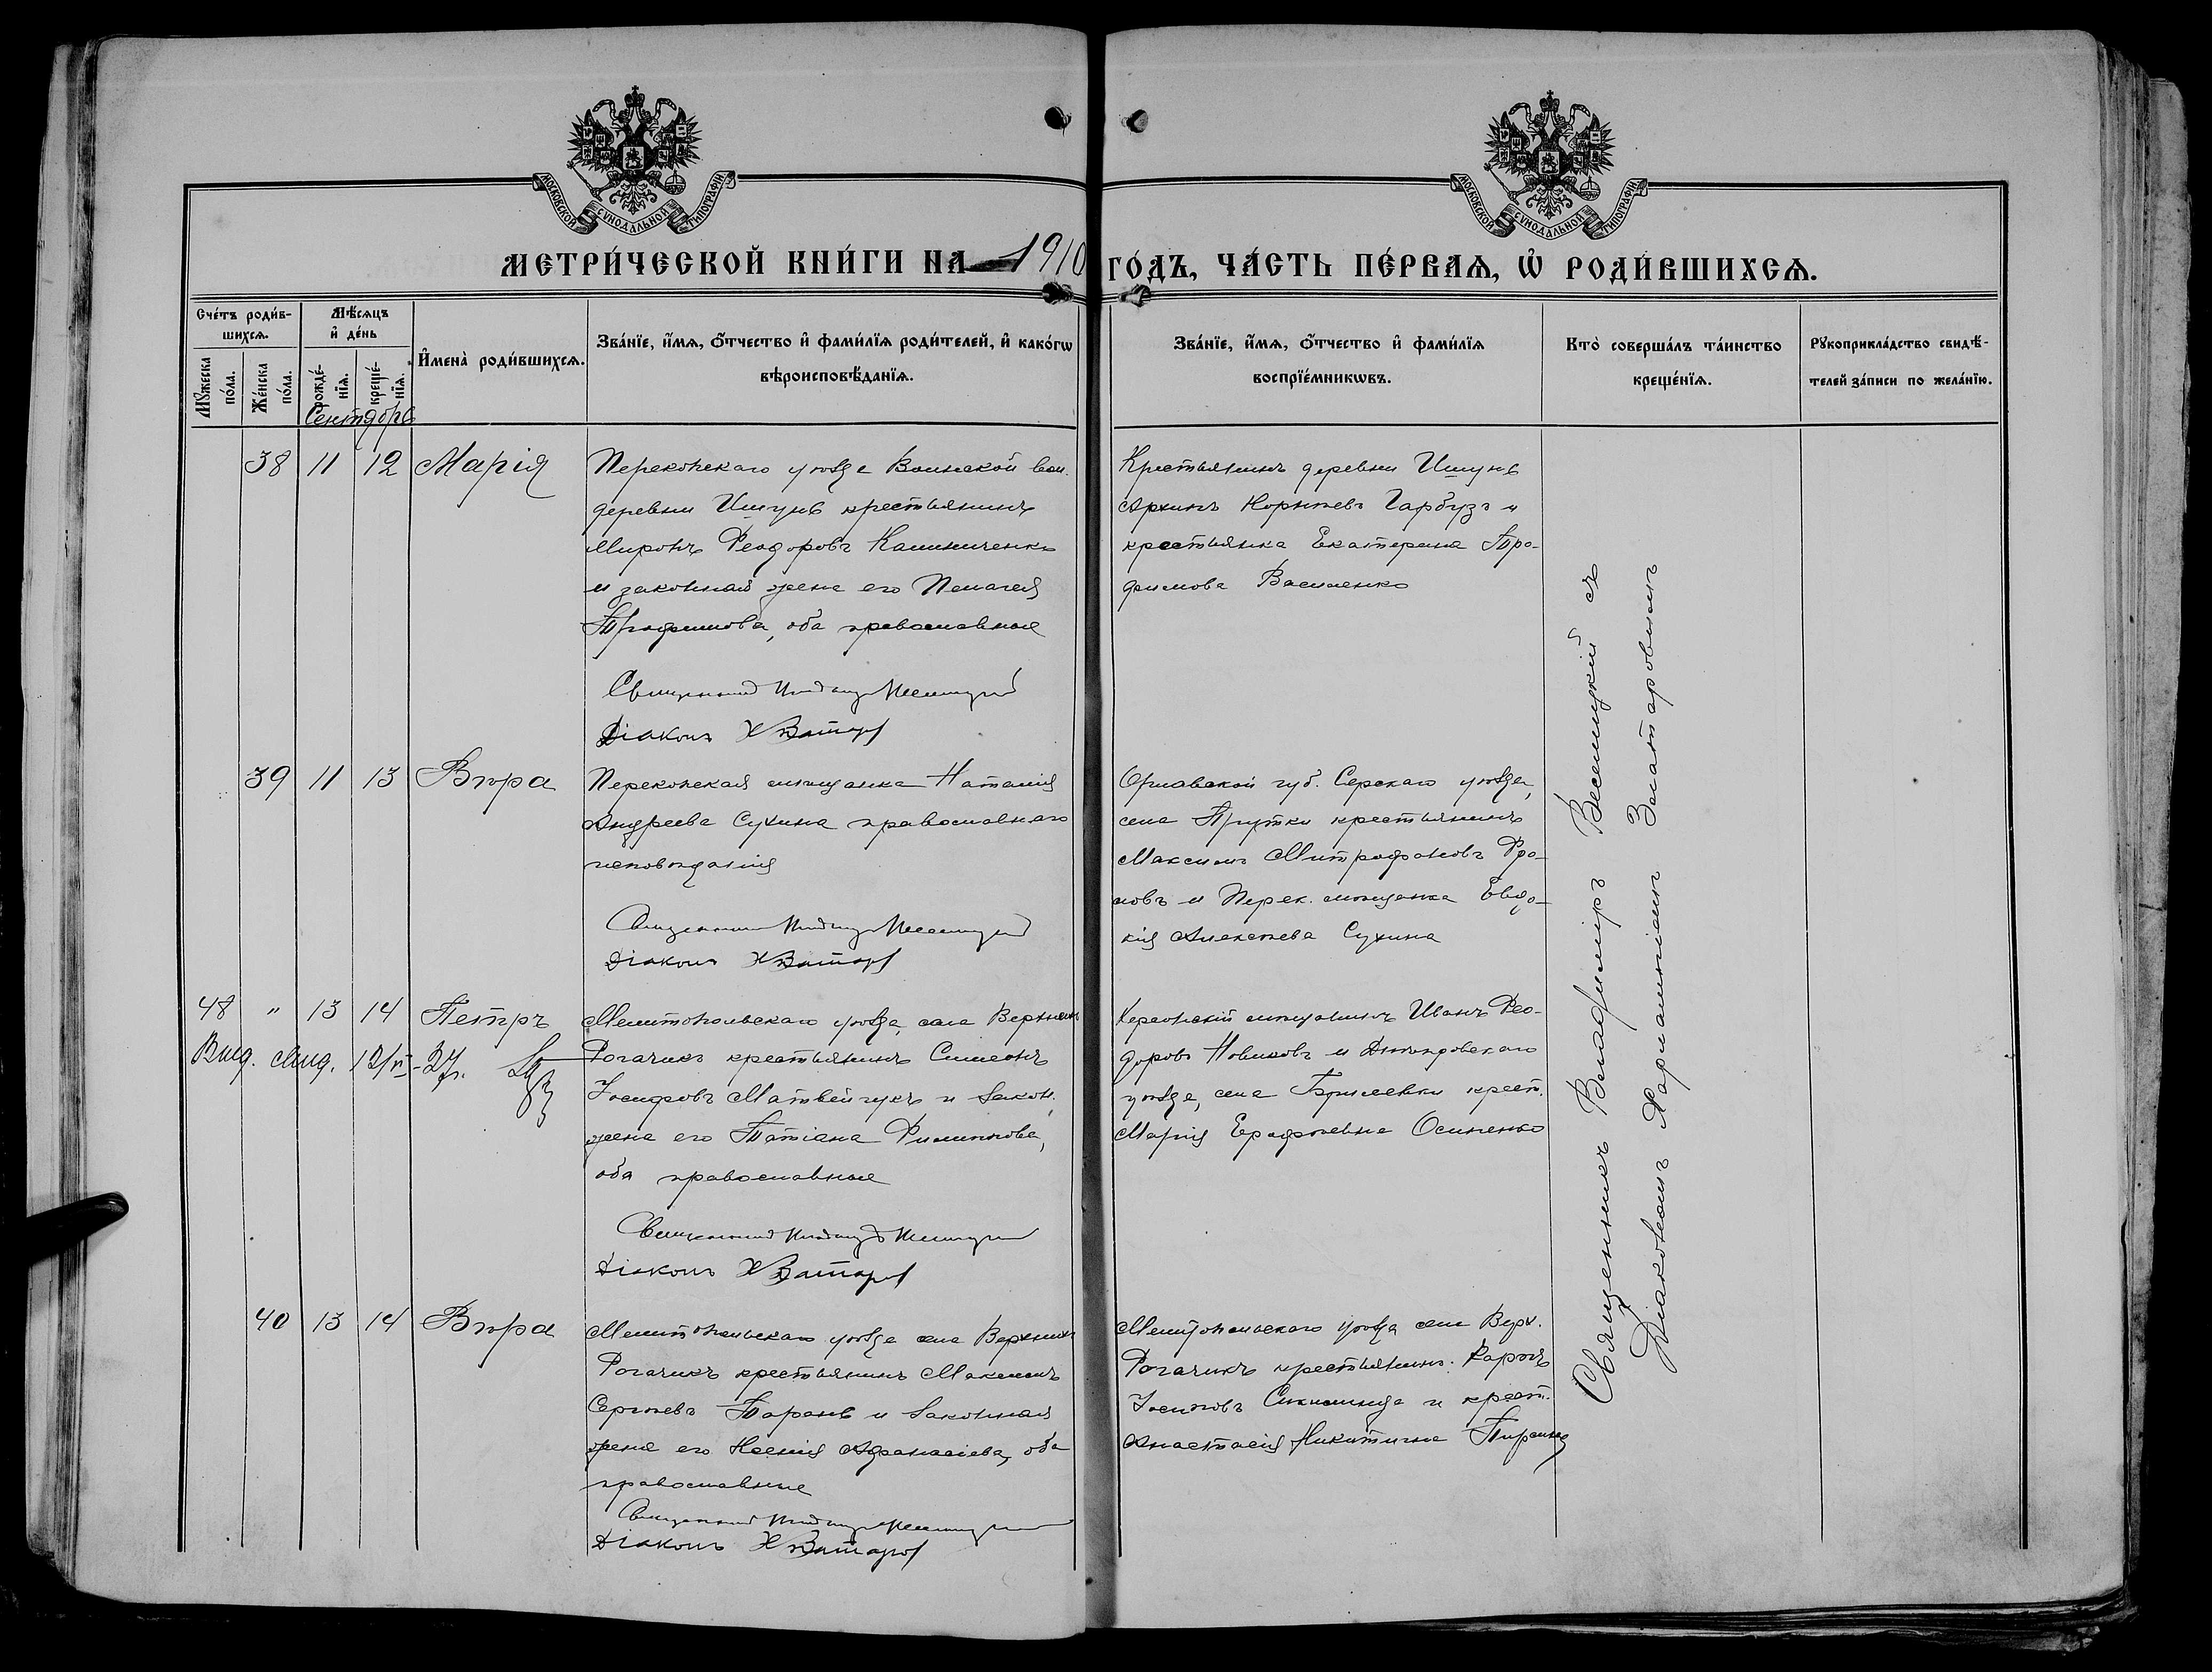 МОСКОВСКОЙ СѴНОДАЛЬНОЙ ТИПОГРАФІИ
МОСКОВСКОЙ СѴНОДАЛЬНОЙ ТИПОГРАФІИ
МЕТРИ́ЧЕСКОЙ КНИ́ГИ НА 1910 ГО́ДЪ, ЧА́СТЬ ПЕ́РВАѦ, Ѽ РОДИ́ВШИХСѦ.
Сче́тъ роди́в-
шихсѧ.
Мꙋ́жеска по́ла.
Же́нска по́ла.
Мѣ́сѧцъ
и҆ де́нь
рожде́-нїѧ.
креще́-нїѧ.
И҆мена̀ роди́вшихсѧ.
Зва́нїе, и҆́мѧ, ѻ҆́тчество и҆ фами́лїѧ роди́телей, и҆ како́гѡ
вѣроисповѣ́данїѧ.
Зва́нїе, и҆́мѧ, ѻ҆́тчество и҆ фами́лїѧ
воспрїе́мникѡвъ.
Кто̀ соверша́лъ та́инство
креще́нїѧ.
Рꙋкоприкла́дство свидѣ́-
телей за́писи по жела́нїю.
Сентябрь
38 11 12 Марія
Перекопскаго уѣзда Воинской вол.
деревни Ишунь крестьянинъ
Миронъ Феодоровъ Калиниченко
и законная жена его Пелагея
Трофимова, оба православные
Священник
Діаконъ Х Златаров
Крестьянинъ деревни Ишунь
Архипъ Корнѣевъ Гарбузъ и
крестьянка Екатерина Тро-
фимова Василенко
39 11 13 Вѣра
Перекопская мѣщанка Наталія
Андреева Сухина православнаго
исповѣданія
Священник
Діаконъ Х Златаров
губ. уѣзда,
села Прутки крестьянинъ
Максимъ Митрофановъ Фро-
ловъ и Перек. мѣщанка Евдо-
кія Алексѣева Сухина
48 " 13 14 Петръ
Выд. 12/VI-27г.
Мелитопольскаго уѣзда, села Верхній
Рогачикъ крестьянинъ Симеонъ
Іосифовъ Матвейчукъ и закон.
жена его Татіана Филиппова,
оба православные
Священник
Діаконъ Х Златаров
Херсонскій мѣщанинъ Иванъ Фео-
доровъ Новиковъ и Днѣпровскаго
уѣзда, села Брилевки крест.
Марія Ерофѣевна Осипенко
40 13 14 Вѣра
Мелитопольскаго уѣзда села Верхній
Рогачикъ крестьянинъ Максимъ
Сергѣевъ Таранъ и законная
жена его Ксенія Афанасіева, оба
православные
Священник
Діаконъ Х Златаров
Мелитопольскаго уѣзда села Верх.
Рогачикъ крестьянинъ Карпъ
Іосифовъ и крест.
Анастасія Никитична
Священникъ Владимиръ Веселицкій съ
Діакономъ Харлампіемъ Златаровымъ